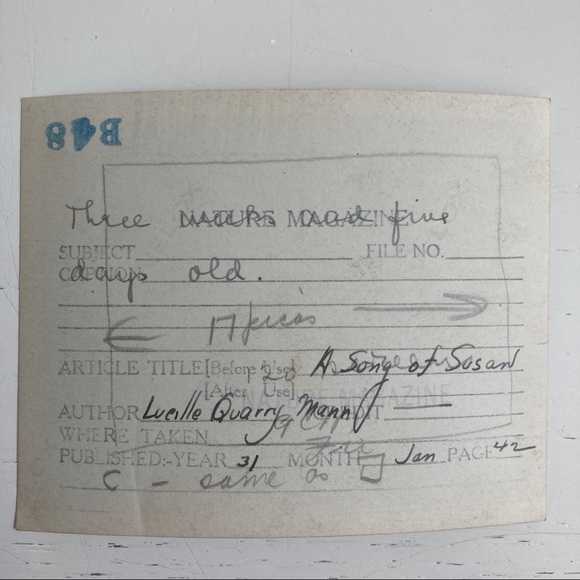 B48
NATURE MAGAZINE
Three weeks and five
SUBJECT FILE NO.
CAPTION
days old.
17 picas
ARTICLE TITLE [Before Use] A Song of Susan
[After Use]
NATURE MAGAZINE
AUTHOR Lucille Quarry Mann
WHERE TAKEN
PUBLISHED:-YEAR 31 MONTH Jan PAGE 42
C - same as